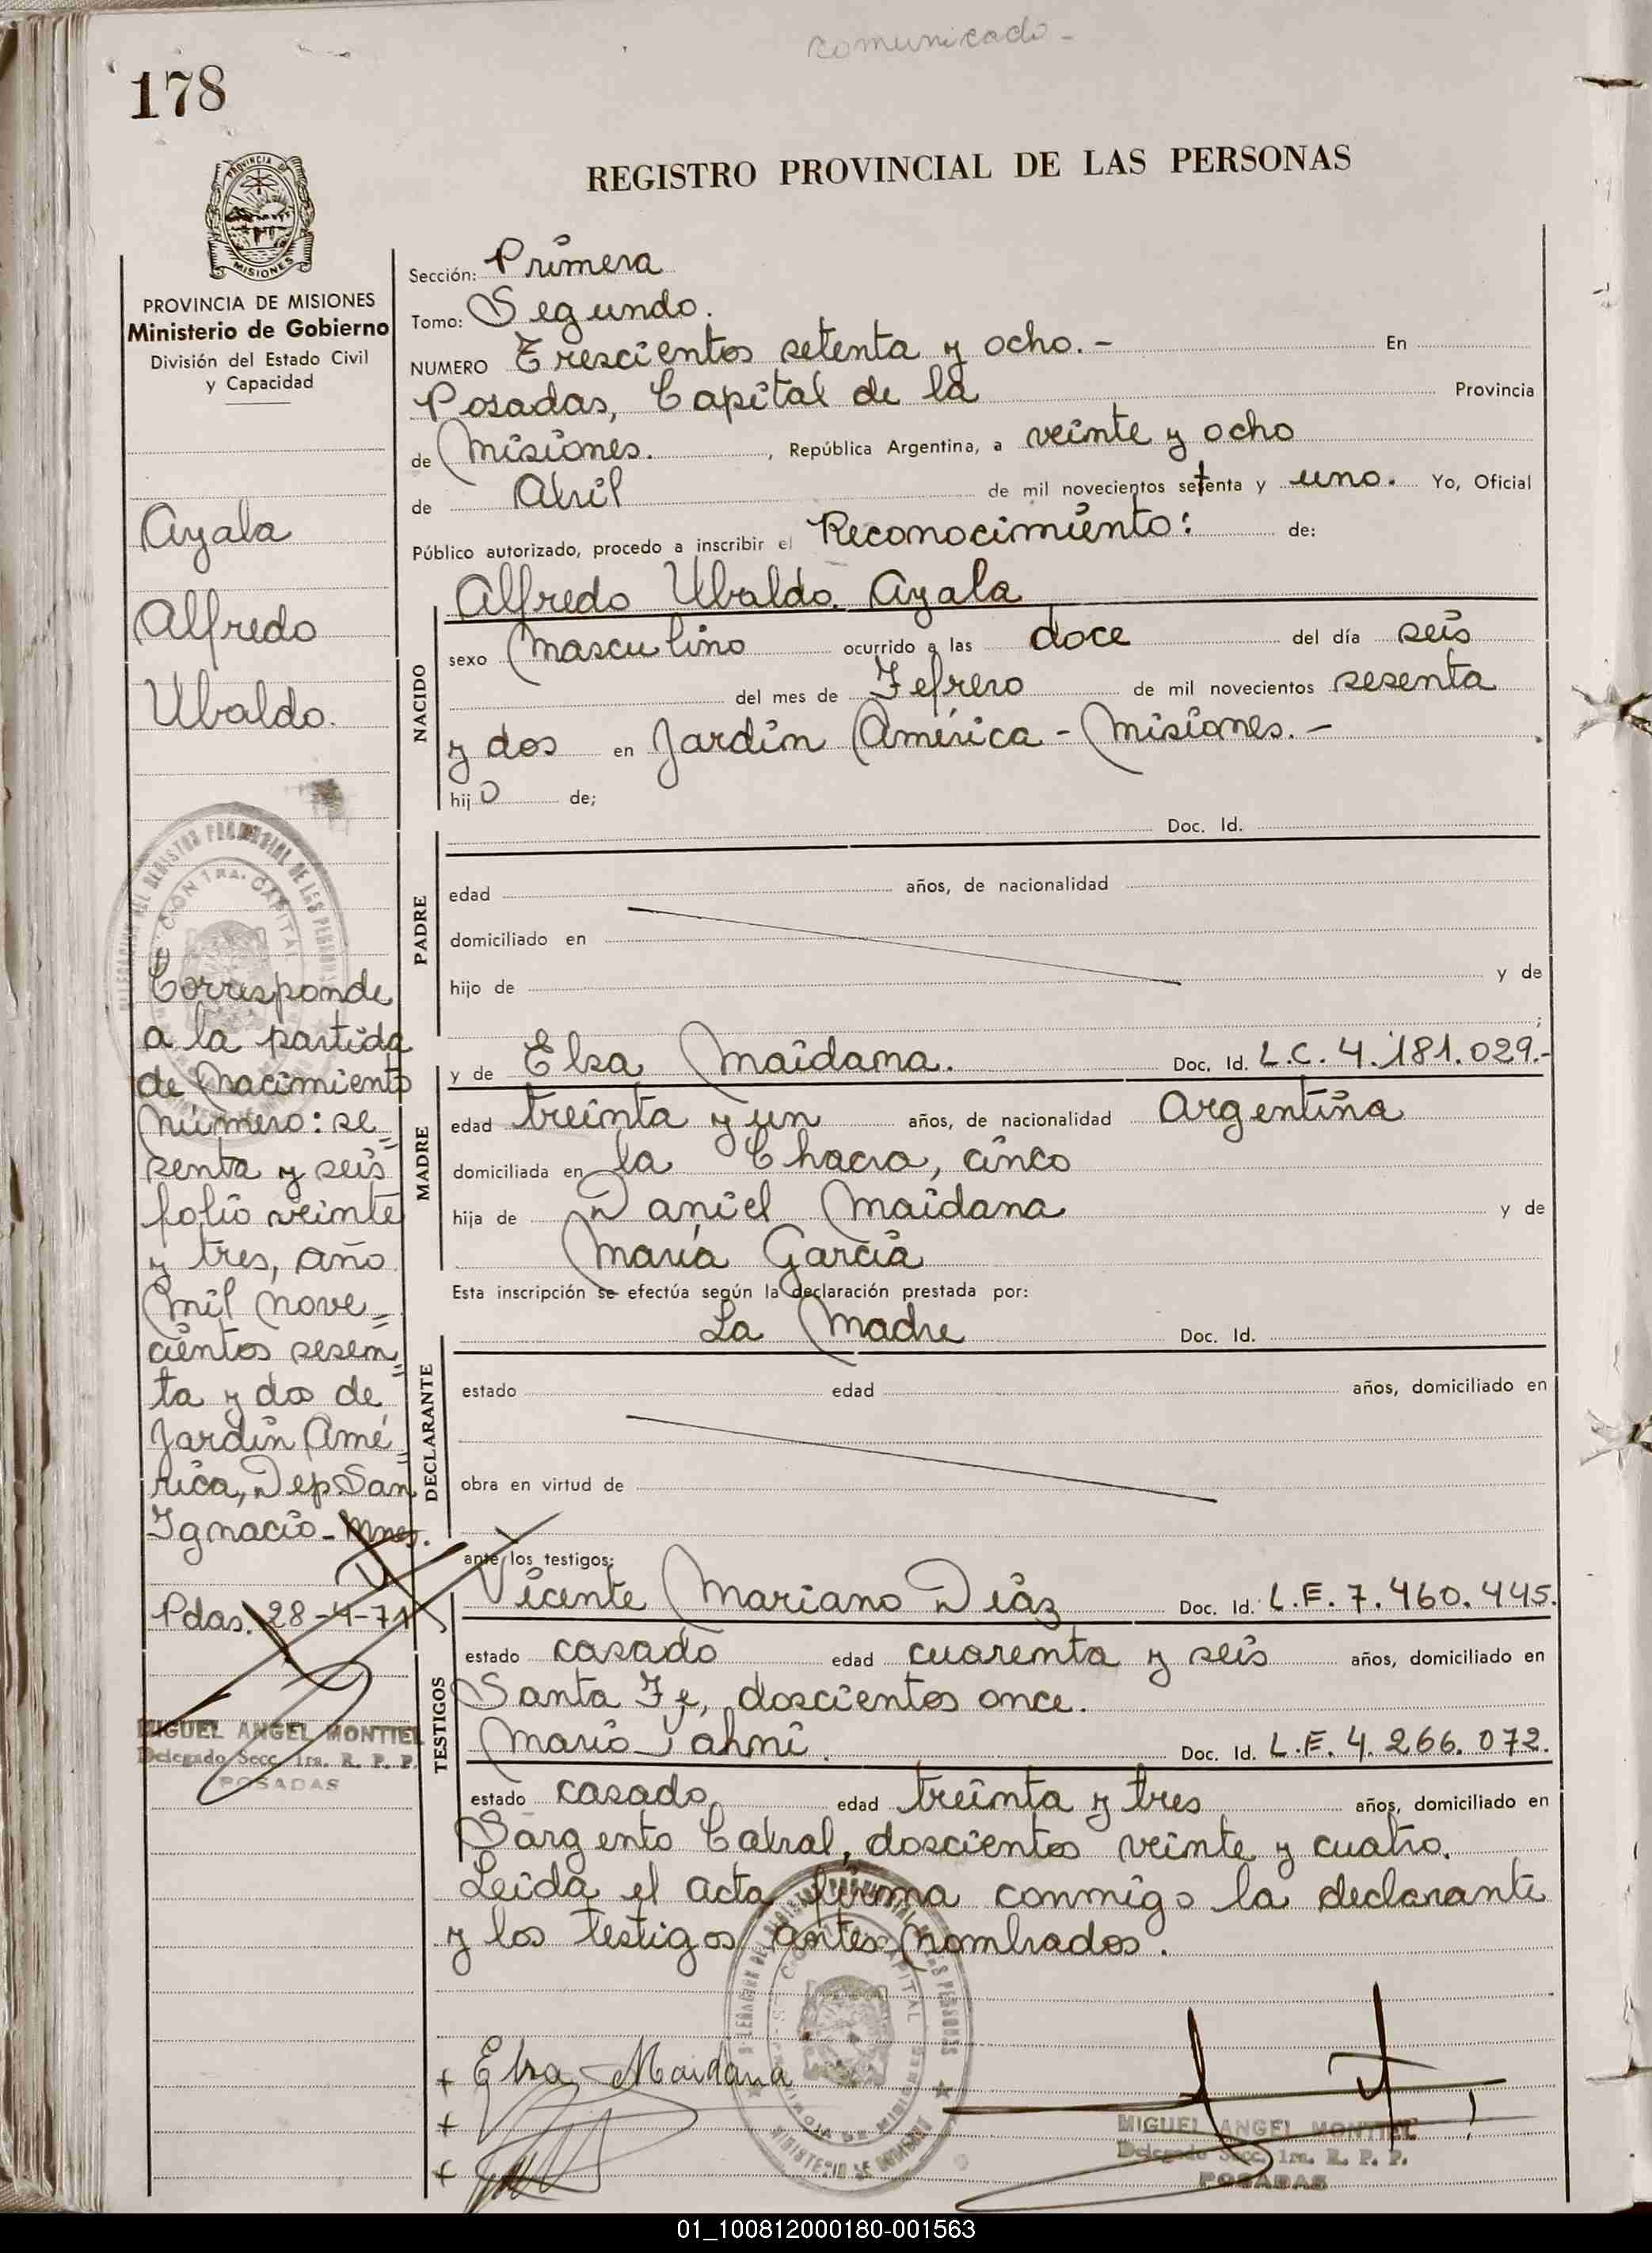 comunicado-
178
REGISTRO PROVINCIAL DE LAS PERSONAS
PROVINCIA DE
MISIONES
PROVINCIA DE MISIONES
Ministerio de Gobierno
División del Estado Civil
y Capacidad
Ayala
Alfredo
Ubaldo.
Corresponde
a la partida
de Nacimiento
Número: se=
senta y seis
folio veinte
y tres, año
mil nove=
cientos sesen=
ta y dos de
Jardín Amé=
rica, Dep San
Ignacio - Mnes.
Pdas. 28-4-71
MIGUEL ANGEL MONTIEL
Delegado Secc. 1ra. R. P. P.
POSADAS
Sección: Primera
Tomo: Segundo.
NUMERO Trescientos setenta y ocho.- En
Posadas, Capital de la Provincia
de Misiones. , República Argentina, a veinte y ocho
de Abril de mil novecientos setenta y uno. Yo, Oficial
Público autorizado, procedo a inscribir el Reconocimiento: de:
Alfredo Ubaldo Ayala
NACIDO
sexo Masculino ocurrido a las doce del día seis
del mes de Febrero de mil novecientos sesenta
y dos en Jardín América - Misiones.-
hijo de;
PADRE
Doc. Id.
edad años, de nacionalidad
domiciliado en
hijo de y de
;
MADRE
y de Elsa Maidana. Doc. Id. L.C. 4.181.029.-
edad treinta y un años, de nacionalidad Argentina
domiciliada en la Chacra, cinco
hija de Daniel Maidana y de
María García
Esta inscripción se efectúa según la declaración prestada por:
DECLARANTE
La Madre Doc. Id.
estado edad años, domiciliado en
obra en virtud de
ante los testigos:
TESTIGOS
Vicente Mariano Díaz Doc. Id. L.E. 7.460.445.
estado casado edad cuarenta y seis años, domiciliado en
Santa Fe, doscientos once.
Mario Jahni. Doc. Id. L.E. 4.266.072.
estado casado edad treinta y tres años, domiciliado en
Sargento Cabral, doscientos veinte y cuatro.
Leída el acta, firma conmigo la declarante
y los testigos antes nombrados.
+ Elsa Maidana
+
+
MIGUEL ANGEL MONTIEL
Delegado Secc. 1ra. R. P. P.
POSADAS
01_100812000180-001563